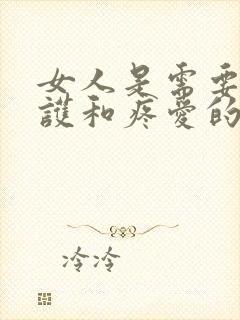 女人是需要
護和疼愛的
冷冷